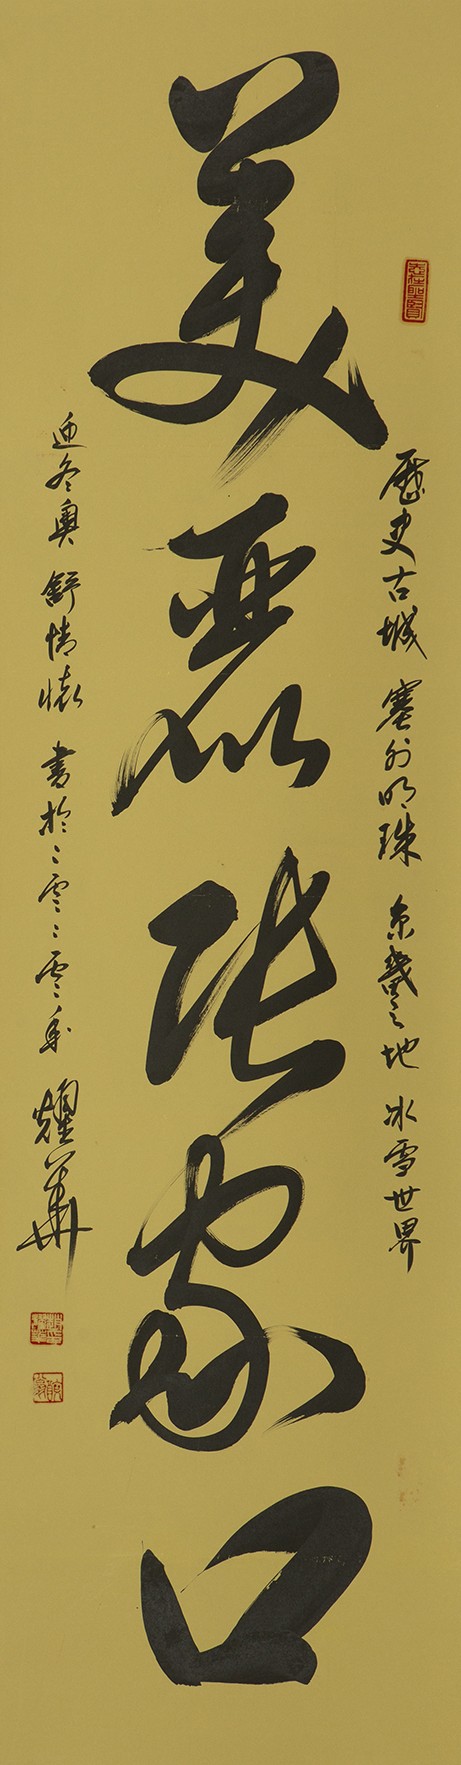 歷史古城 塞外明珠 京畿之地 冰雪世界
美麗張家口
迎冬奧 舒情懷 書於二零二零年 耀華